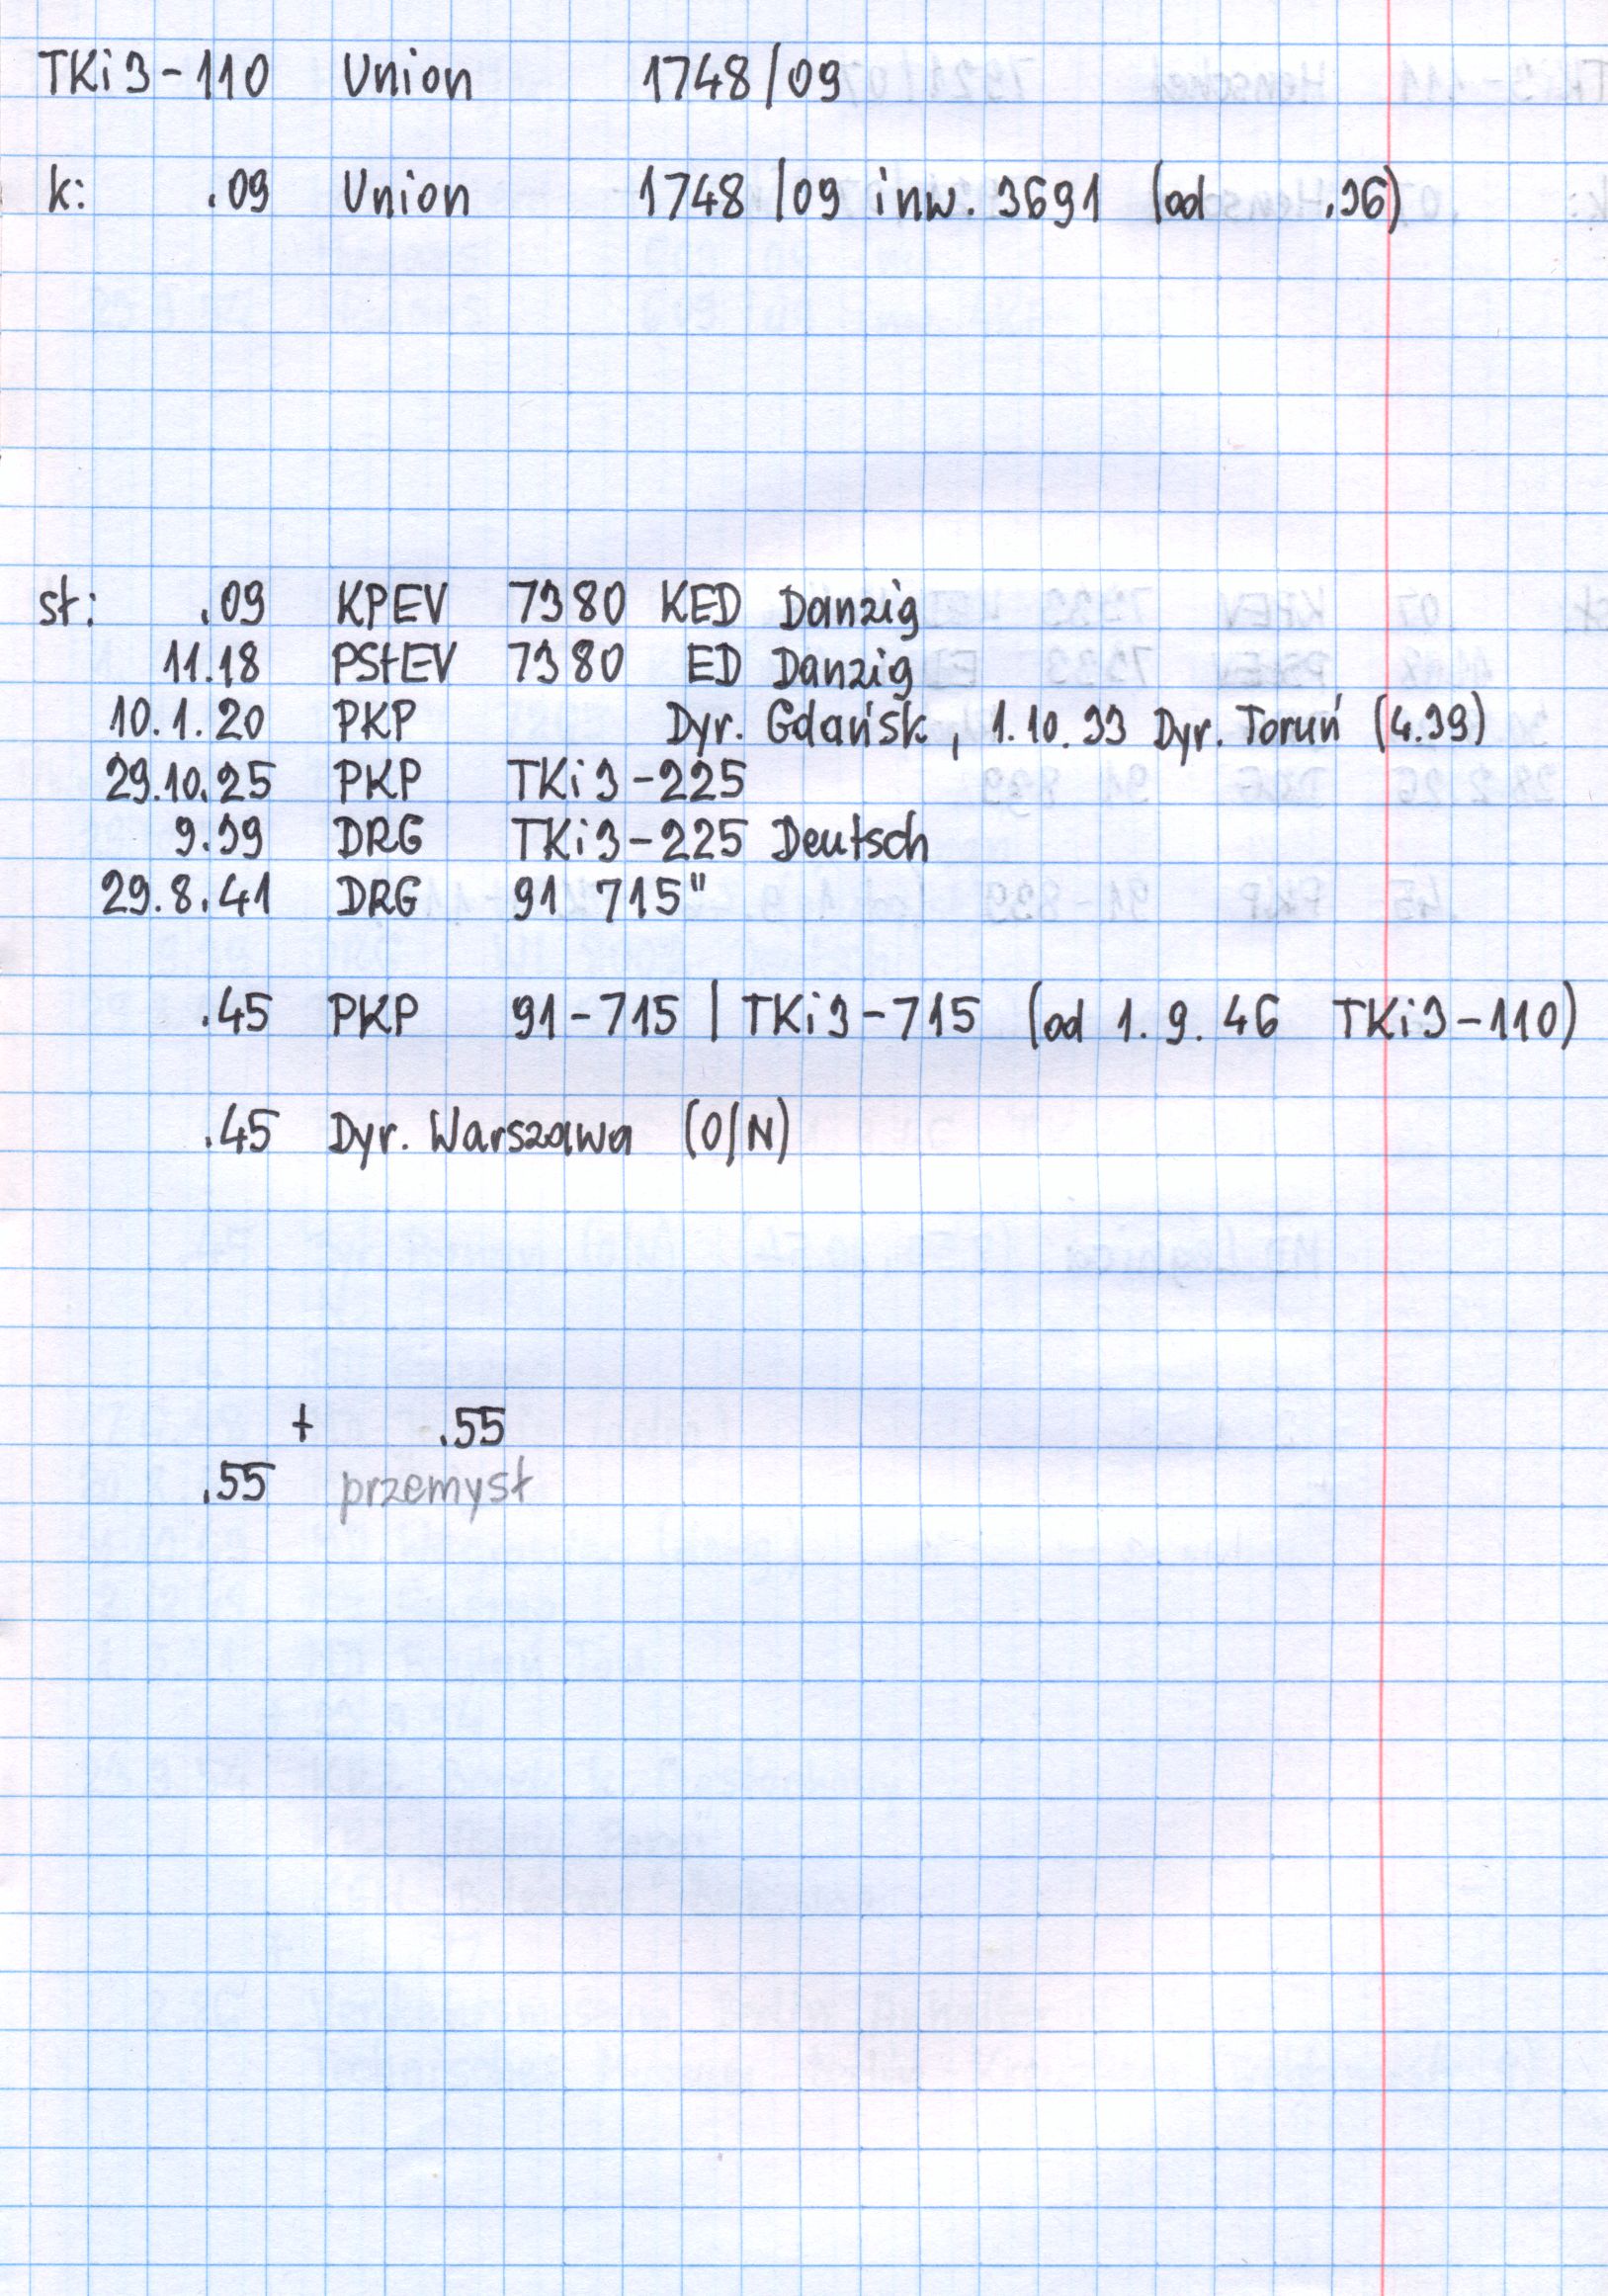 TKi3-110 Union 1748/09
k: .09 Union 1748/09 inw. 3691 (od .36)
st: .09 KPEV 7380 KED Danzig
11.18 PStEV 7380 ED Danzig
10.1.20 PKP Dyr. Gdańsk, 1.10.33 Dyr. Toruń (4.39)
29.10.25 PKP TKi3-225
9.39 DRG TKi3-225 Deutsch
29.8.41 DRG 91 715"
.45 PKP 91-715 | TKi3-715 (od 1.9.46 TKi3-110)
.45 Dyr. Warszawa (O/N)
+ .55
.55 przemysł